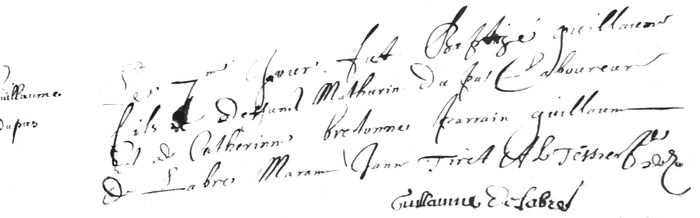 Guillaume
dupas
Le 7me Jour fut Baptizé guillaume
fils de defunct Mathurin du pas Laboureur
Et de Catherinne bretonne parrain guillaume
de Labres Maram Jann Tiret
Guillaume de labres